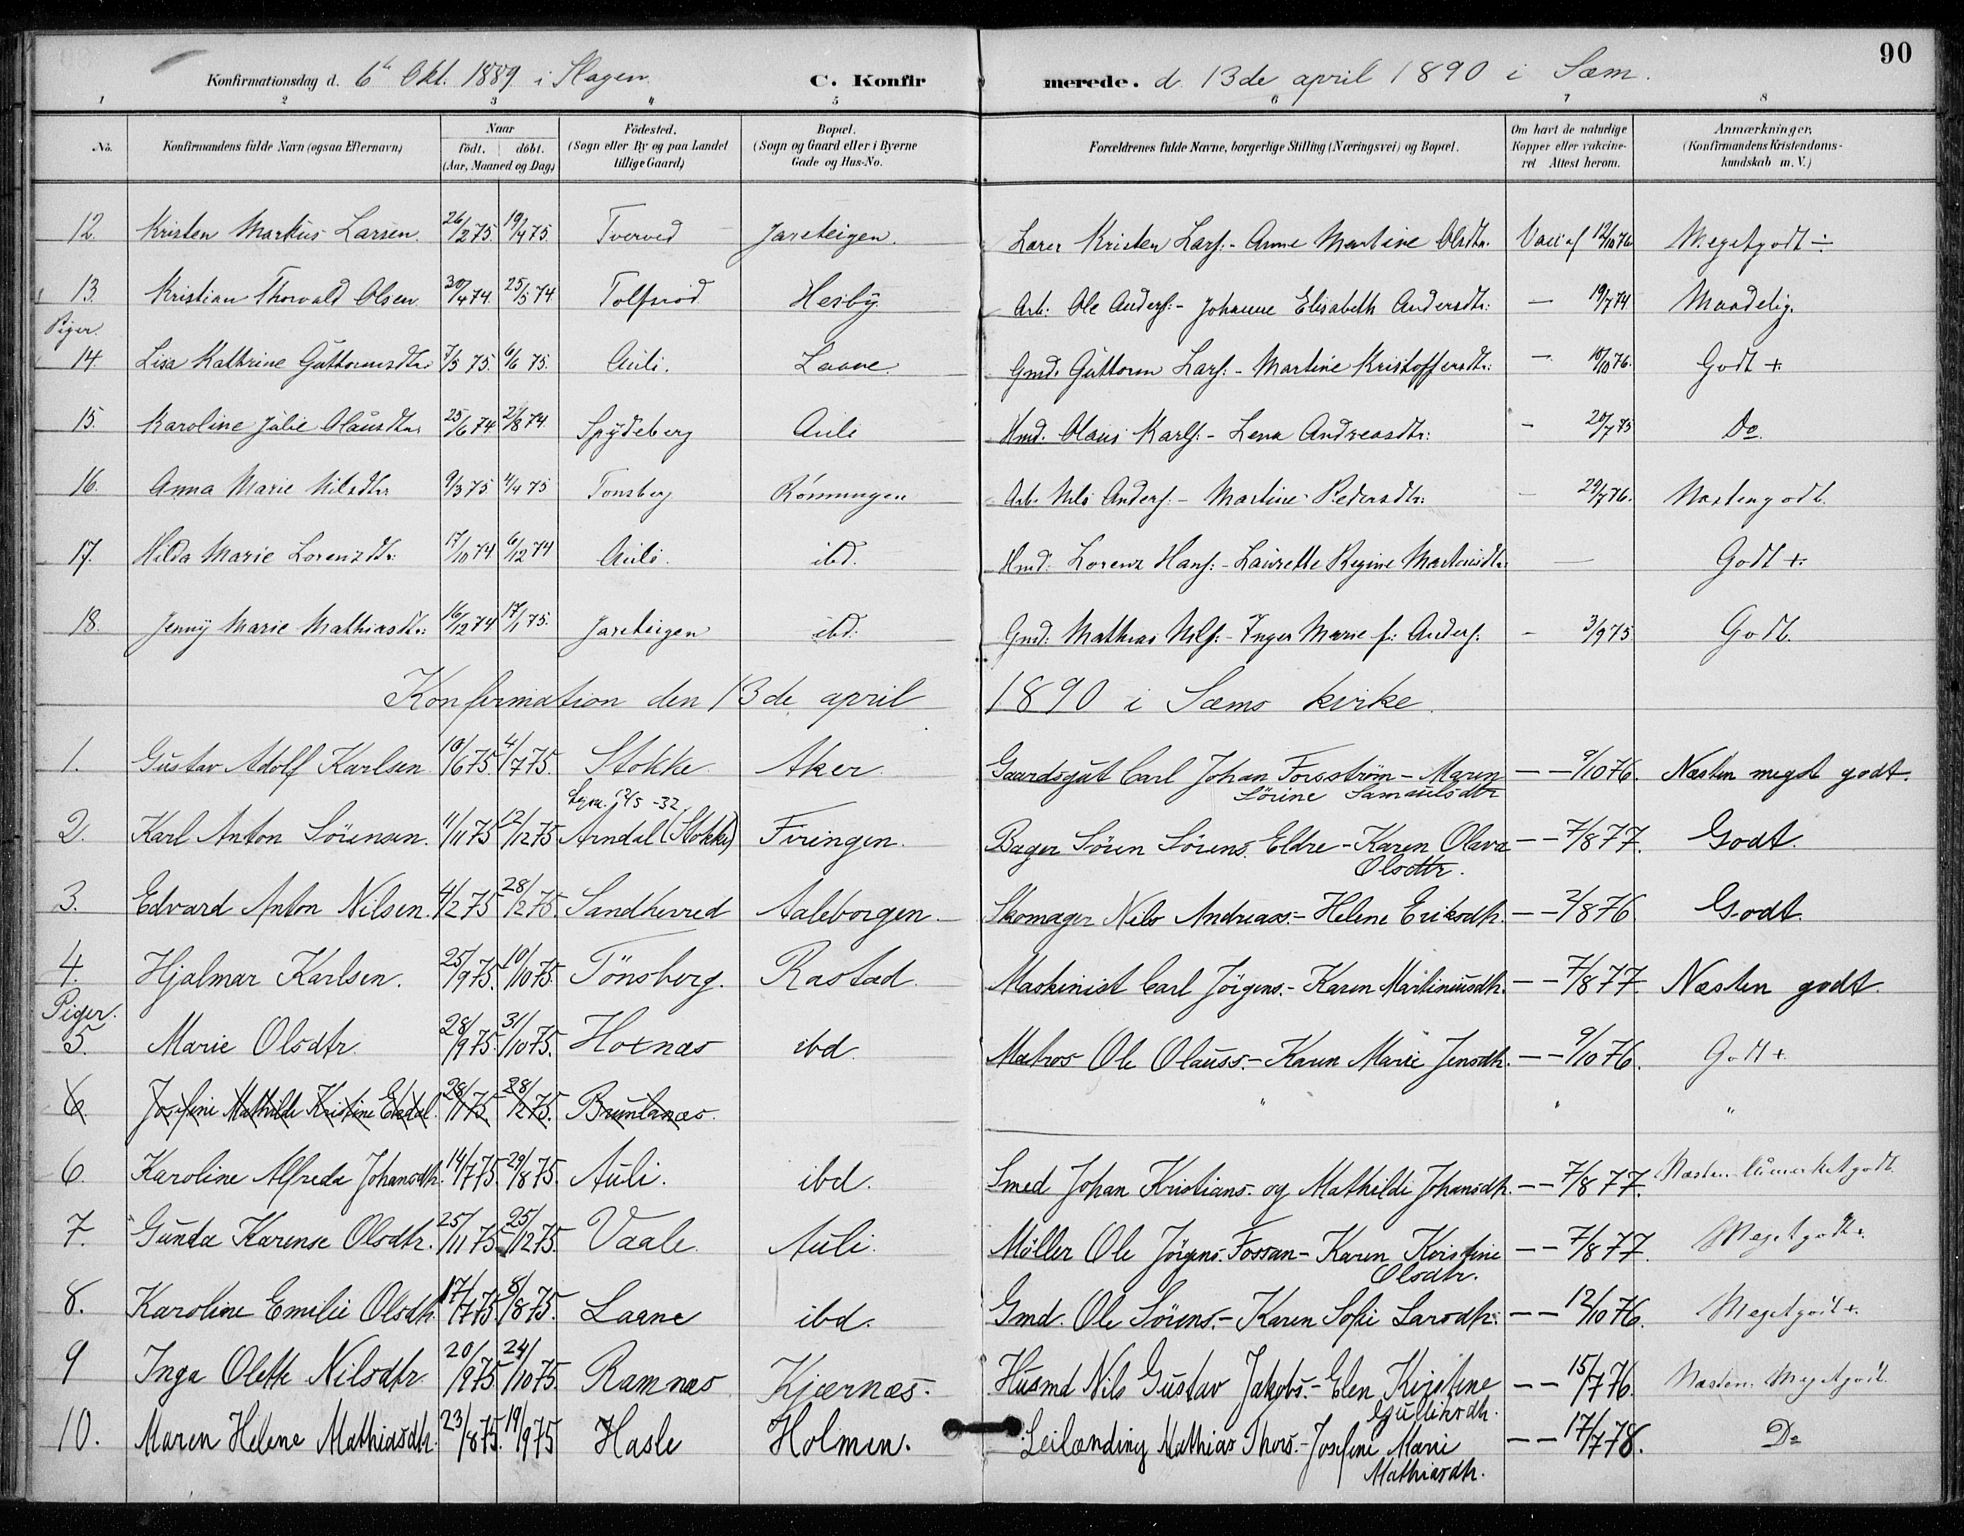 90
Konfirmationsdag d. 6te Okt. 1889 i Slagen. C. Konfirmerede. d 13de april 1890 i Sæm.
1 2 3 4 5 6 7 8
No. Konfirmandens fulde Navn (ogsaa Efternavn) Naar født. døbt. (Aar, Maaned og Dag) Fødested. (Sogn eller By og paa Landet tillige Gaard) Bopæl. (Sogn og Gaard eller i Byerne Gade og Hus-No. Forældrenes fulde Navne, borgerlige Stilling (Næringsvei) og Bopæl. Om havt de naturlige Kopper eller vakcineret Attest herom. Anmærkninger. (Konfirmandens Kristendomskundskab m. V.)
12. Kristen Markus Larsen. 26/2 75. 19/4 75. Tverved Jareteigen. Lærer Kristen Lars:- Anne Martine Olsdtr. Vacc. af 12/10 76 Megetgodt ÷
13. Kristian Thorvald Olsen. 30/4 74 25/5 74 Tolfsrød Hesby Arb: Ole Anders:- Johanne Elisabeth Andersdtr: — 19/7 74 Maadelig.
Piger.
14. Lisa Kathrine Guttormsdtr. 7/5 75. 6/6 75. Auli. Laane Gmd. Guttorm Lars:- Martine Kristoffersdtr: — 10/10 76. Godt +
15. Karoline Julie Olausdtr. 25/6 74 2/8 74 Spydeberg Auli Hmd. Olaus Karls:- Lena Andreasdtr: - 20/7 75 Do.
16. Anna Marie Nilsdtr 9/3 75 4/4 75 Tønsberg Rønningen Arb. Nils Anders:- Martine Pedersdtr: - 29/7 76. Næstengodt.
17. Hilda Marie Lorenzdtr: 17/10 74 6/12 74 Auli. ibd. Hmd: Lorenz Hans:- Laurette Regine Martinsdtr. — Godt +.
18. Jenny Marie Mathiasdtr: 16/12 74 17/1 75. Jareteigen ibd: Gmd: Mathias Nils:- Inger Marie f: Anders: - 3/9 75 Godt.
Konfirmation den 13de april 1890 i Sæms kirke.
1. Gustav Adolf Karlsen 10/6 75. 4/7 75. Stokke Aker Gaardsgut Carl Johan Forsström- Maren — — 9/10 76. Næsten meget godt.
Sörine Samuelsdtr
2. Karl Anton Sörensen. 11/11 75 12/12 75 Arndal (Stokke) Firingen. Bager Sören Sörens. Eldre- Karen Olava — — 7/8 77. Godt.
Olsdtr.
3. Edvard Anton Nilsen. 4/2 75 28/2 75. Sandherred Aaleborgen. Skomager Nils Andreass.- Helene Eriksdtr. — — 3/8 76 Godt.
4. Hjalmar Karlsen. 25/9 75. 10/10 75. Tönsberg. Rastad Maskinist Carl Jörgens.- Karen Martinusdtr. — — 7/8 77. Næsten godt.
Piger.
5. Marie Olsdtr 28/9 75. 31/10 75. Hotnæs ibd Matros Ole Olauss.- Karen Marie Jensdtr. — — 9/10 76. Godt +.
6. Josefine Mathilde Kristine Ekdal. 28/1 75. 28/2 75. Brunlanæs. " " "
6. Karoline Alfreda Johansdtr. 14/7 75. 29/8 75. Auli. ibd. Smed Johan Kristians. og Mathilde Johansdtr. — — 7/8 77. Næsten udmerketgodt
7. Gunda Karense Olsdtr. 25/11 75 25/12 75. Vaale. Auli. Möller Ole Jörgens. Fossan- Karen Kristine — — 7/8 77. Megetgodt +.
Olsdtr.
8. Karoline Emilie Olsdtr. 17/7 75 8/8 75. Laane ibd. Gmd. Ole Sörens.- Karen Sofie Larsdtr: — — 12/10 76. Megetgodt +.
9 Inga Olette Nilsdtr. 20/9 75 24/10 75. Ramnæs Kjærnæs. Husmd Nils Gustav Jakobs.- Elen Kirstine — — 15/7 76. Næsten Megetgodt.
Gulliksdtr.
10. Maren Helene Mathiasdtr. 23/8 75. 19/9 75 Hasle Holmen. Leilænding Mathias Thors.- Josefine Marie — — 17/7 78. Do
Mathiasdtr.